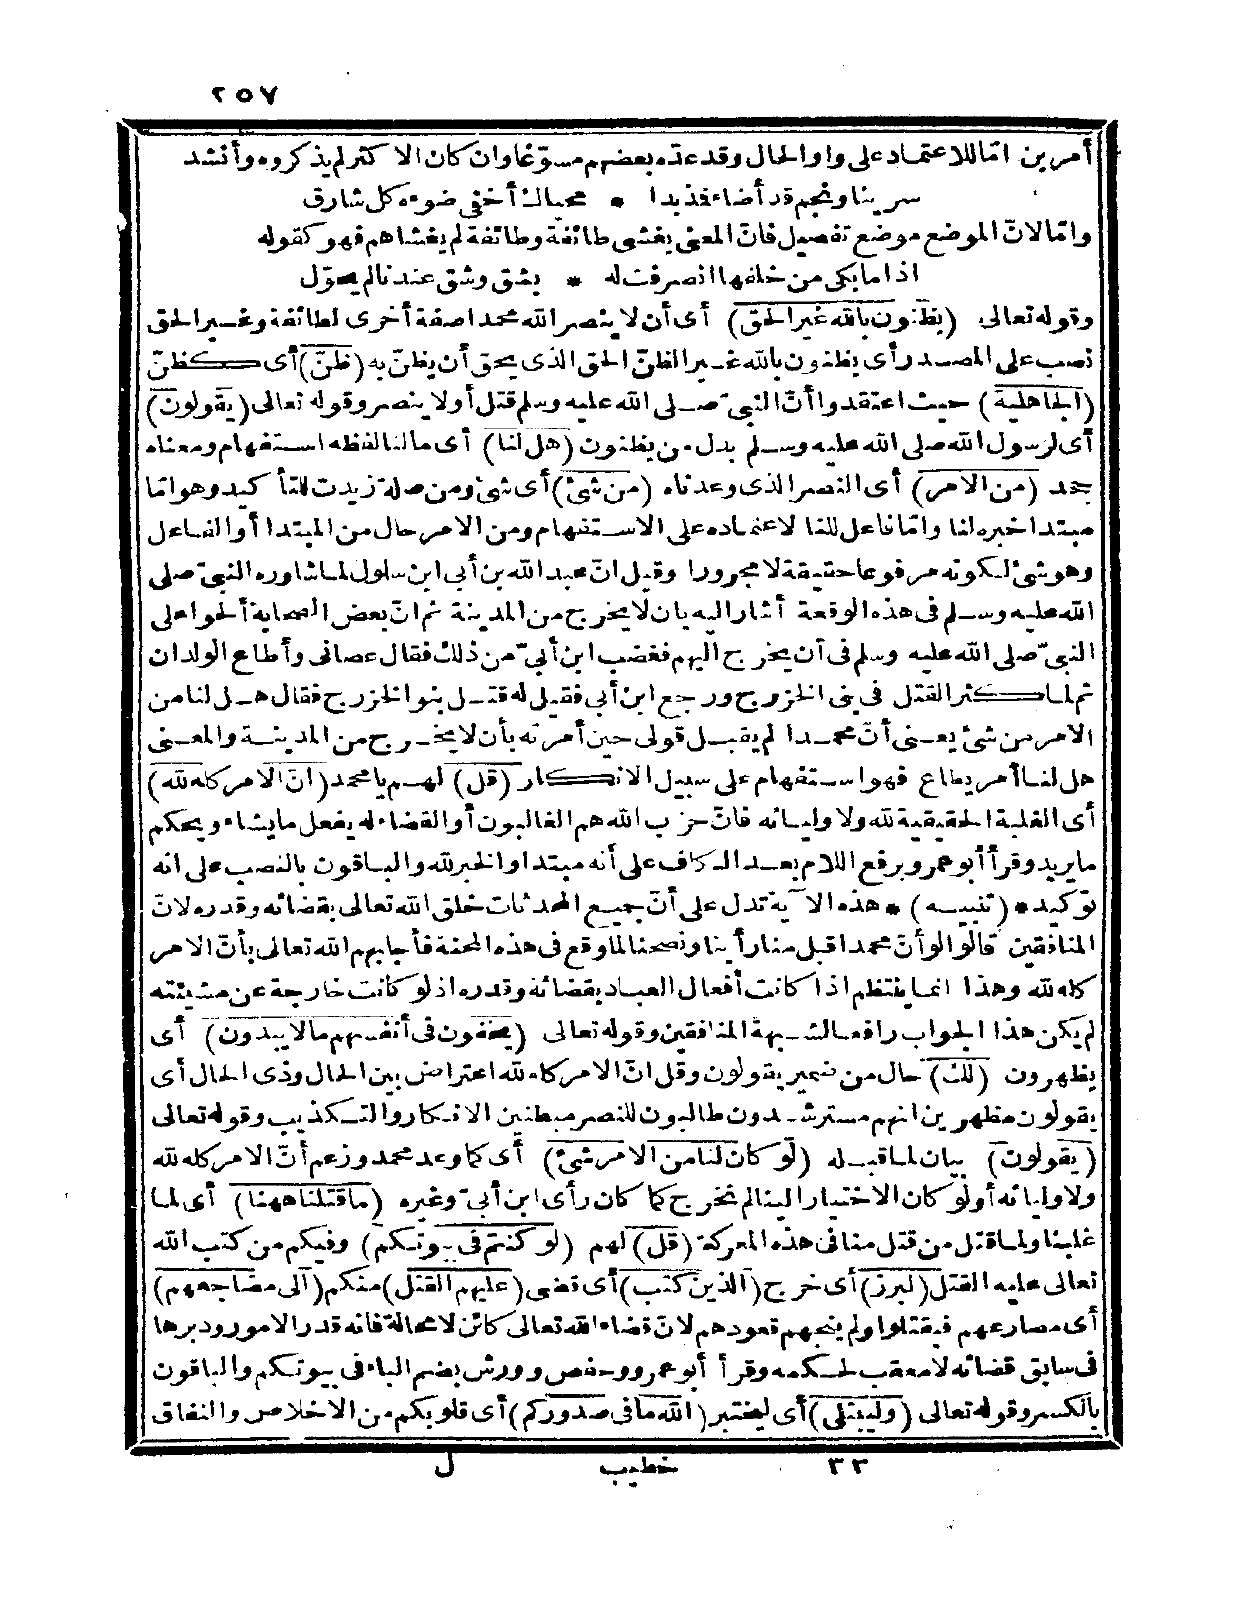 ٢٥٧
أمرين امّا للاعتماد على واو الحال وقد عدّه بعضهم مسوّغا وان كان الاكثر لم يذكروه وأنشد
سرينا ونجم قد أضاء فمذ بدا * محياك أخفى ضوءه كل شارق
وامّا لانّ الموضع موضع تفصيل فانّ المعنى يغشى طائفة وطائفة لم يغشاهم فهو كقوله
اذا ما بكى من خلفها انصرفت له * بشق وشق عندنا لم يحوّل
وقوله تعالى (يظنون بالله غير الحق) أى أن لا ينصر الله محمدا صفة أخرى لطائفة وغير الحق
نصب على المصدر أى يظنون بالله غير الظنّ الحق الذى يحق أن يظنّ به (ظنّ) أى كظنّ
(الجاهلية) حيث اعتقدوا أنّ النبىّ صلى الله عليه وسلم قتل أو لا ينصر وقوله تعالى (يقولون)
أى لرسول الله صلى الله عليه وسلم بدل من يظنون (هل لنا) أى ما لنا لفظه استفهام ومعناه
جحد (من الامر) أى النصر الذى وعدناه (من شئ) أى شئ ومن صلة زيدت للتأكيد وهو امّا
مبتدا خبره لنا وامّا فاعل للنا لاعتماده على الاستفهام ومن الامر حال من المبتدا أو الفاعل
وهو شئ لكونه مرفوعا حقيقة لا مجرورا وقيل انّ عبد الله بن أبى ابن سلول لما شاوره النبىّ صلى
الله عليه وسلم فى هذه الوقعة أشار اليه بان لا يخرج من المدينة ثم انّ بعض الصحابة ألحوا على
النبىّ صلى الله عليه وسلم فى أن يخرج اليهم فغضب ابن أبىّ من ذلك فقال عصانى وأطاع الولدان
ثم لما كثر القتل فى بنى الخزرج ورجع ابن أبى فقيل له قتل بنو الخزرج فقال هل لنا من
الامر من شئ يعنى أنّ محمدا لم يقبل قولى حين أمرته بأن لا يخرج من المدينة والمعنى
هل لنا أمر يطاع فهو استفهام على سبيل الانكار (قل) لهم يا محمد (انّ الامر كله لله)
أى الغلبة الحقيقية لله ولاوليائه فانّ حزب الله هم الغالبون أو القضاء له يفعل ما يشاء ويحكم
ما يريد وقرأ أبو عمرو برفع اللام بعد الكاف على أنه مبتدا والخبر لله والباقون بالنصب على انه
توكيد * (تنبيه) * هذه الآية تدل على أنّ جميع المحدثات خلق الله تعالى بقضائه وقدره لانّ
المنافقين قالوا لو أنّ محمدا قبل منا رأينا ونصحنا لما وقع فى هذه المحنة فأجابهم الله تعالى بأنّ الامر
كله لله وهذا انما ينتظم اذا كانت أفعال العباد بقضائه وقدره اذ لو كانت خارجة عن مشيئته
لم يكن هذا الجواب رافعا لشبهة المنافقين وقوله تعالى (يخفون فى أنفسهم ما لا يبدون) أى
يظهرون (لك) حال من ضمير يقولون وقل انّ الامر كله لله اعتراض بين الحال وذى الحال أى
يقولون مظهرين انهم مسترشدون طالبون للنصر مبطنين الانكار والتكذيب وقوله تعالى
(يقولون) بيان لما قبله (لو كان لنا من الامر شئ) أى كما وعد محمد وزعم أنّ الامر كله لله
ولاوليائه أو لو كان الاختيار الينا لم نخرج كما كان رأى ابن أبىّ وغيره (ما قتلنا ههنا) أى لما
غلبنا ولما قتل من قتل منا فى هذه المعركة (قل) لهم (لو كنتم فى بيوتكم) وفيكم من كتب الله
تعالى عليه القتل (لبرز) أى خرج (الذين كتب) أى قضى (عليهم القتل) منكم (الى مضاجعهم)
أى مصارعهم فيقتلوا ولم ينجهم قعودهم لانّ قضاء الله تعالى كائن لا محالة فانه قدر الامور ودبرها
فى سابق قضائه لا معقب لحكمه وقرأ أبو عمرو وحفص وورش بضم الباء فى بيوتكم والباقون
بالكسر وقوله تعالى (وليبتلى) أى ليختبر (الله ما فى صدوركم) أى قلوبكم من الاخلاص والنفاق
٣٣ خطيب ل